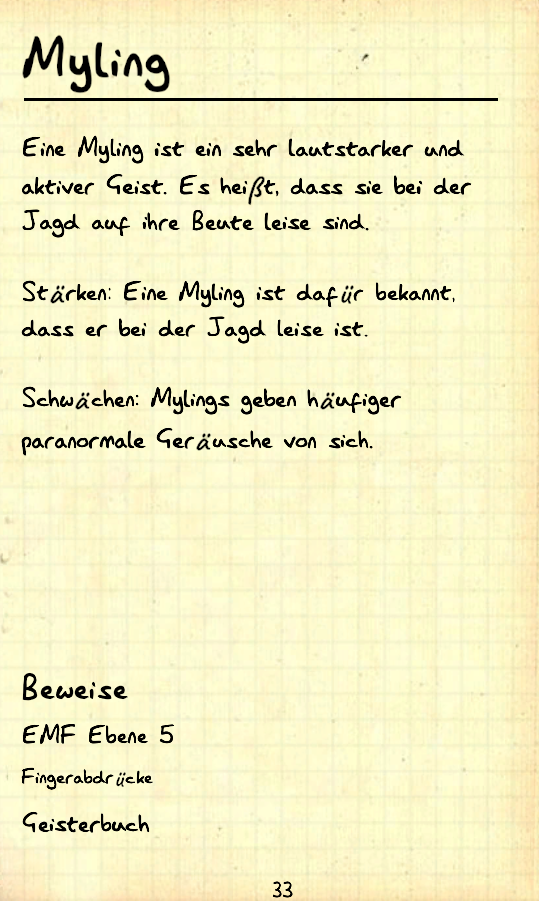 Myling
Eine Myling ist ein sehr lautstarker und
aktiver Geist. Es heißt, dass sie bei der
Jagd auf ihre Beute leise sind.
Stärken: Eine Myling ist dafür bekannt,
dass er bei der Jagd leise ist.
Schwächen: Mylings geben häufiger
paranormale Geräusche von sich.
Beweise
EMF Ebene 5
Fingerabdrücke
Geisterbuch
33